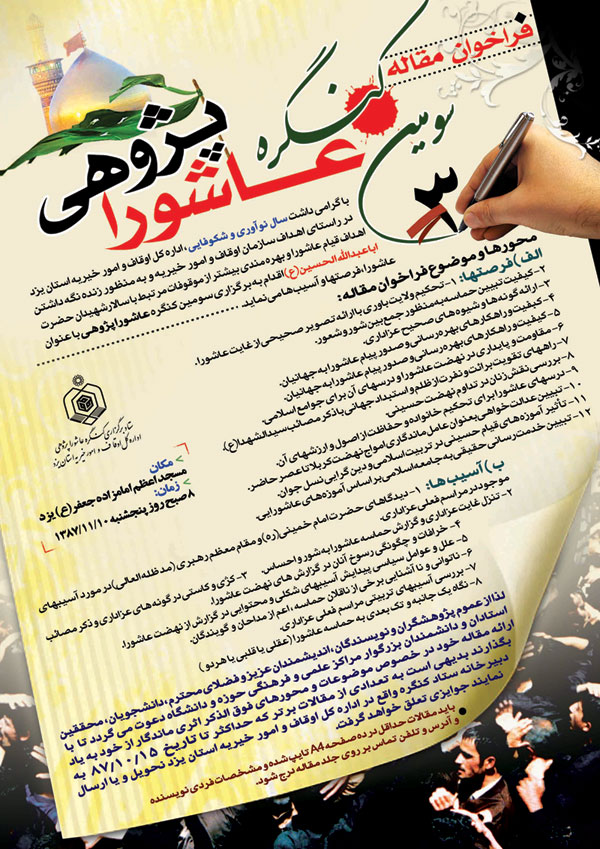 فراخوان مقاله
سومین کنگره
عاشورا پژوهی
۳
با گرامی داشت سال نوآوری و شکوفایی، اداره کل اوقاف و امور خیریه استان یزد
در راستای اهداف سازمان اوقاف و امور خیریه و به منظور زنده نگه داشتن
اهداف قیام عاشورا و بهره مندی بیشتر از موقوفات مرتبط با سالار شهیدان حضرت
اباعبدالله الحسین(ع) اقدام به برگزاری سومین کنگره عاشورا پژوهی با عنوان
عاشورا، فرصتها و آسیب‌ها می نماید.
محورها و موضوع فراخوان مقاله:
الف) فرصتها: ۱- تحکیم ولایت باوری با ارائه تصویر صحیحی از غایت عاشورا.
۲- کیفیت تبیین حماسه به منظور جمع بین شور و شعور.
۳- ارائه گونه ها و شیوه های صحیح عزاداری.
۴- کیفیت و راهکارهای بهره رسانی و صدور پیام عاشورا به جهانیان.
۵- کیفیت و راهکارهای بهره رسانی و صدور پیام عاشورا به جهانیان.
۶- مقاومت و پایداری در نهضت عاشورا و درسهای آن برای جوامع اسلامی.
۷- راههای تقویت برائت و نفرت از ظلم و استبداد جهانی با ذکر مصائب سیدالشهدا(ع).
۸- بررسی نقش زنان در تداوم نهضت حسینی.
۹- درسهای عاشورا برای تحکیم خانواده و حفاظت از اصول و ارزشهای آن.
۱۰- تبیین عدالت خواهی بعنوان عامل ماندگاری امواج نهضت کربلا تا عصر حاضر.
۱۱- تأثیر آموزه های قیام حسینی در تربیت اسلامی و دین گرایی نسل جوان.
۱۲- تبیین خدمت رسانی حقیقی به جامعه اسلامی بر اساس آموزه های عاشورایی.
ستاد برگزاری کنگره عاشورا پژوهی
اداره کل اوقاف و امور خیریه استان یزد
مکان:
مسجد اعظم امامزاده جعفر(ع) یزد
زمان:
۸ صبح روز پنجشنبه ۱۳۸۷/۱۱/۱۰
ب) آسیب ها: ۱- دیدگاهای حضرت امام خمینی(ره) و مقام معظم رهبری (مدظله العالی) در مورد آسیبهای
موجود در مراسم فعلی عزاداری.
۲- تنزل غایت عزاداری و گزارش حماسه عاشورا به شور و احساس. ۳- کژی و کاستی در گونه های عزاداری و ذکر مصائب
۴- خرافات و چگونگی رسوخ آنان در گزارش های نهضت عاشورا.
۵- علل و عوامل سیاسی پیدایش آسیبهای شکلی و محتوایی در گزارش از نهضت عاشورا.
۶- ناتوانی و نا آشنایی برخی از ناقلان حماسه اعم از مداحان و گویندگان.
۷- بررسی آسیبهای تربیتی مراسم فعلی عزاداری.
۸- نگاه یک جانبه و تک بعدی به حماسه عاشورا (عقلی یا قلبی یا هر دو)
لذا از عموم پژوهشگران و نویسندگان، اندیشمندان عزیز و فضلای محترم، دانشجویان، محققین
استادان و دانشمندان بزرگوار مراکز علمی و فرهنگی حوزه و دانشگاه دعوت می گردد تا با
ارائه مقاله خود در خصوص موضوعات و محورهای فوق الذکر اثری ماندگار از خود به یاد
بگذارند بدیهی است به تعدادی از مقالات برتر که حداکثر تا تاریخ ۸۷/۱۰/۱۵ به
دبیرخانه ستاد کنگره واقع در اداره کل اوقاف و امور خیریه استان یزد تحویل و یا ارسال
نمایند جوایزی تعلق خواهد گرفت.
باید مقالات حداقل در ده صفحه A4 تایپ شده و مشخصات فردی نویسنده
و آدرس و تلفن تماس بر روی جلد مقاله درج شود.